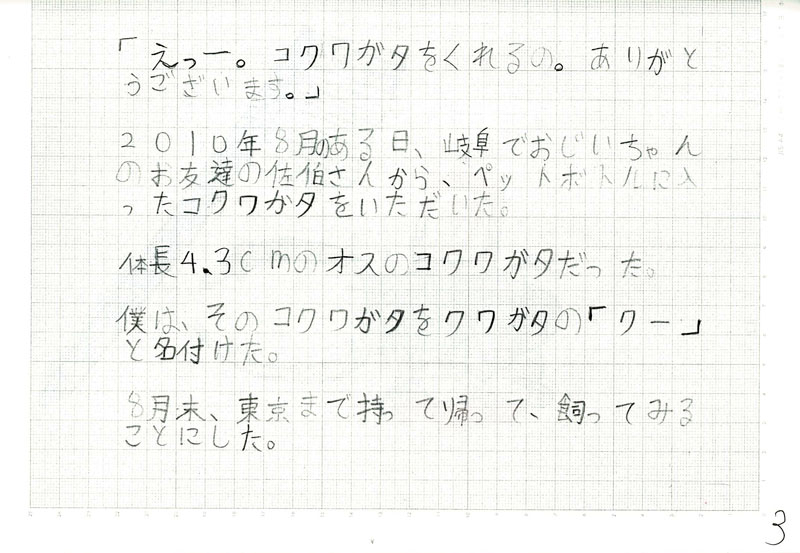 「えっー。コクワガタをくれるの。ありがと
うございます。」
2010年8月のある日、岐阜でおじいちゃん
のお友達の佐伯さんから、ペットボトルに入
ったコクワガタをいただいた。
体長4.3cmのオスのコクワガタだった。
僕は、そのコクワガタをクワガタの「クー」
と名付けた。
8月末、東京まで持って帰って、飼ってみる
ことにした。
3